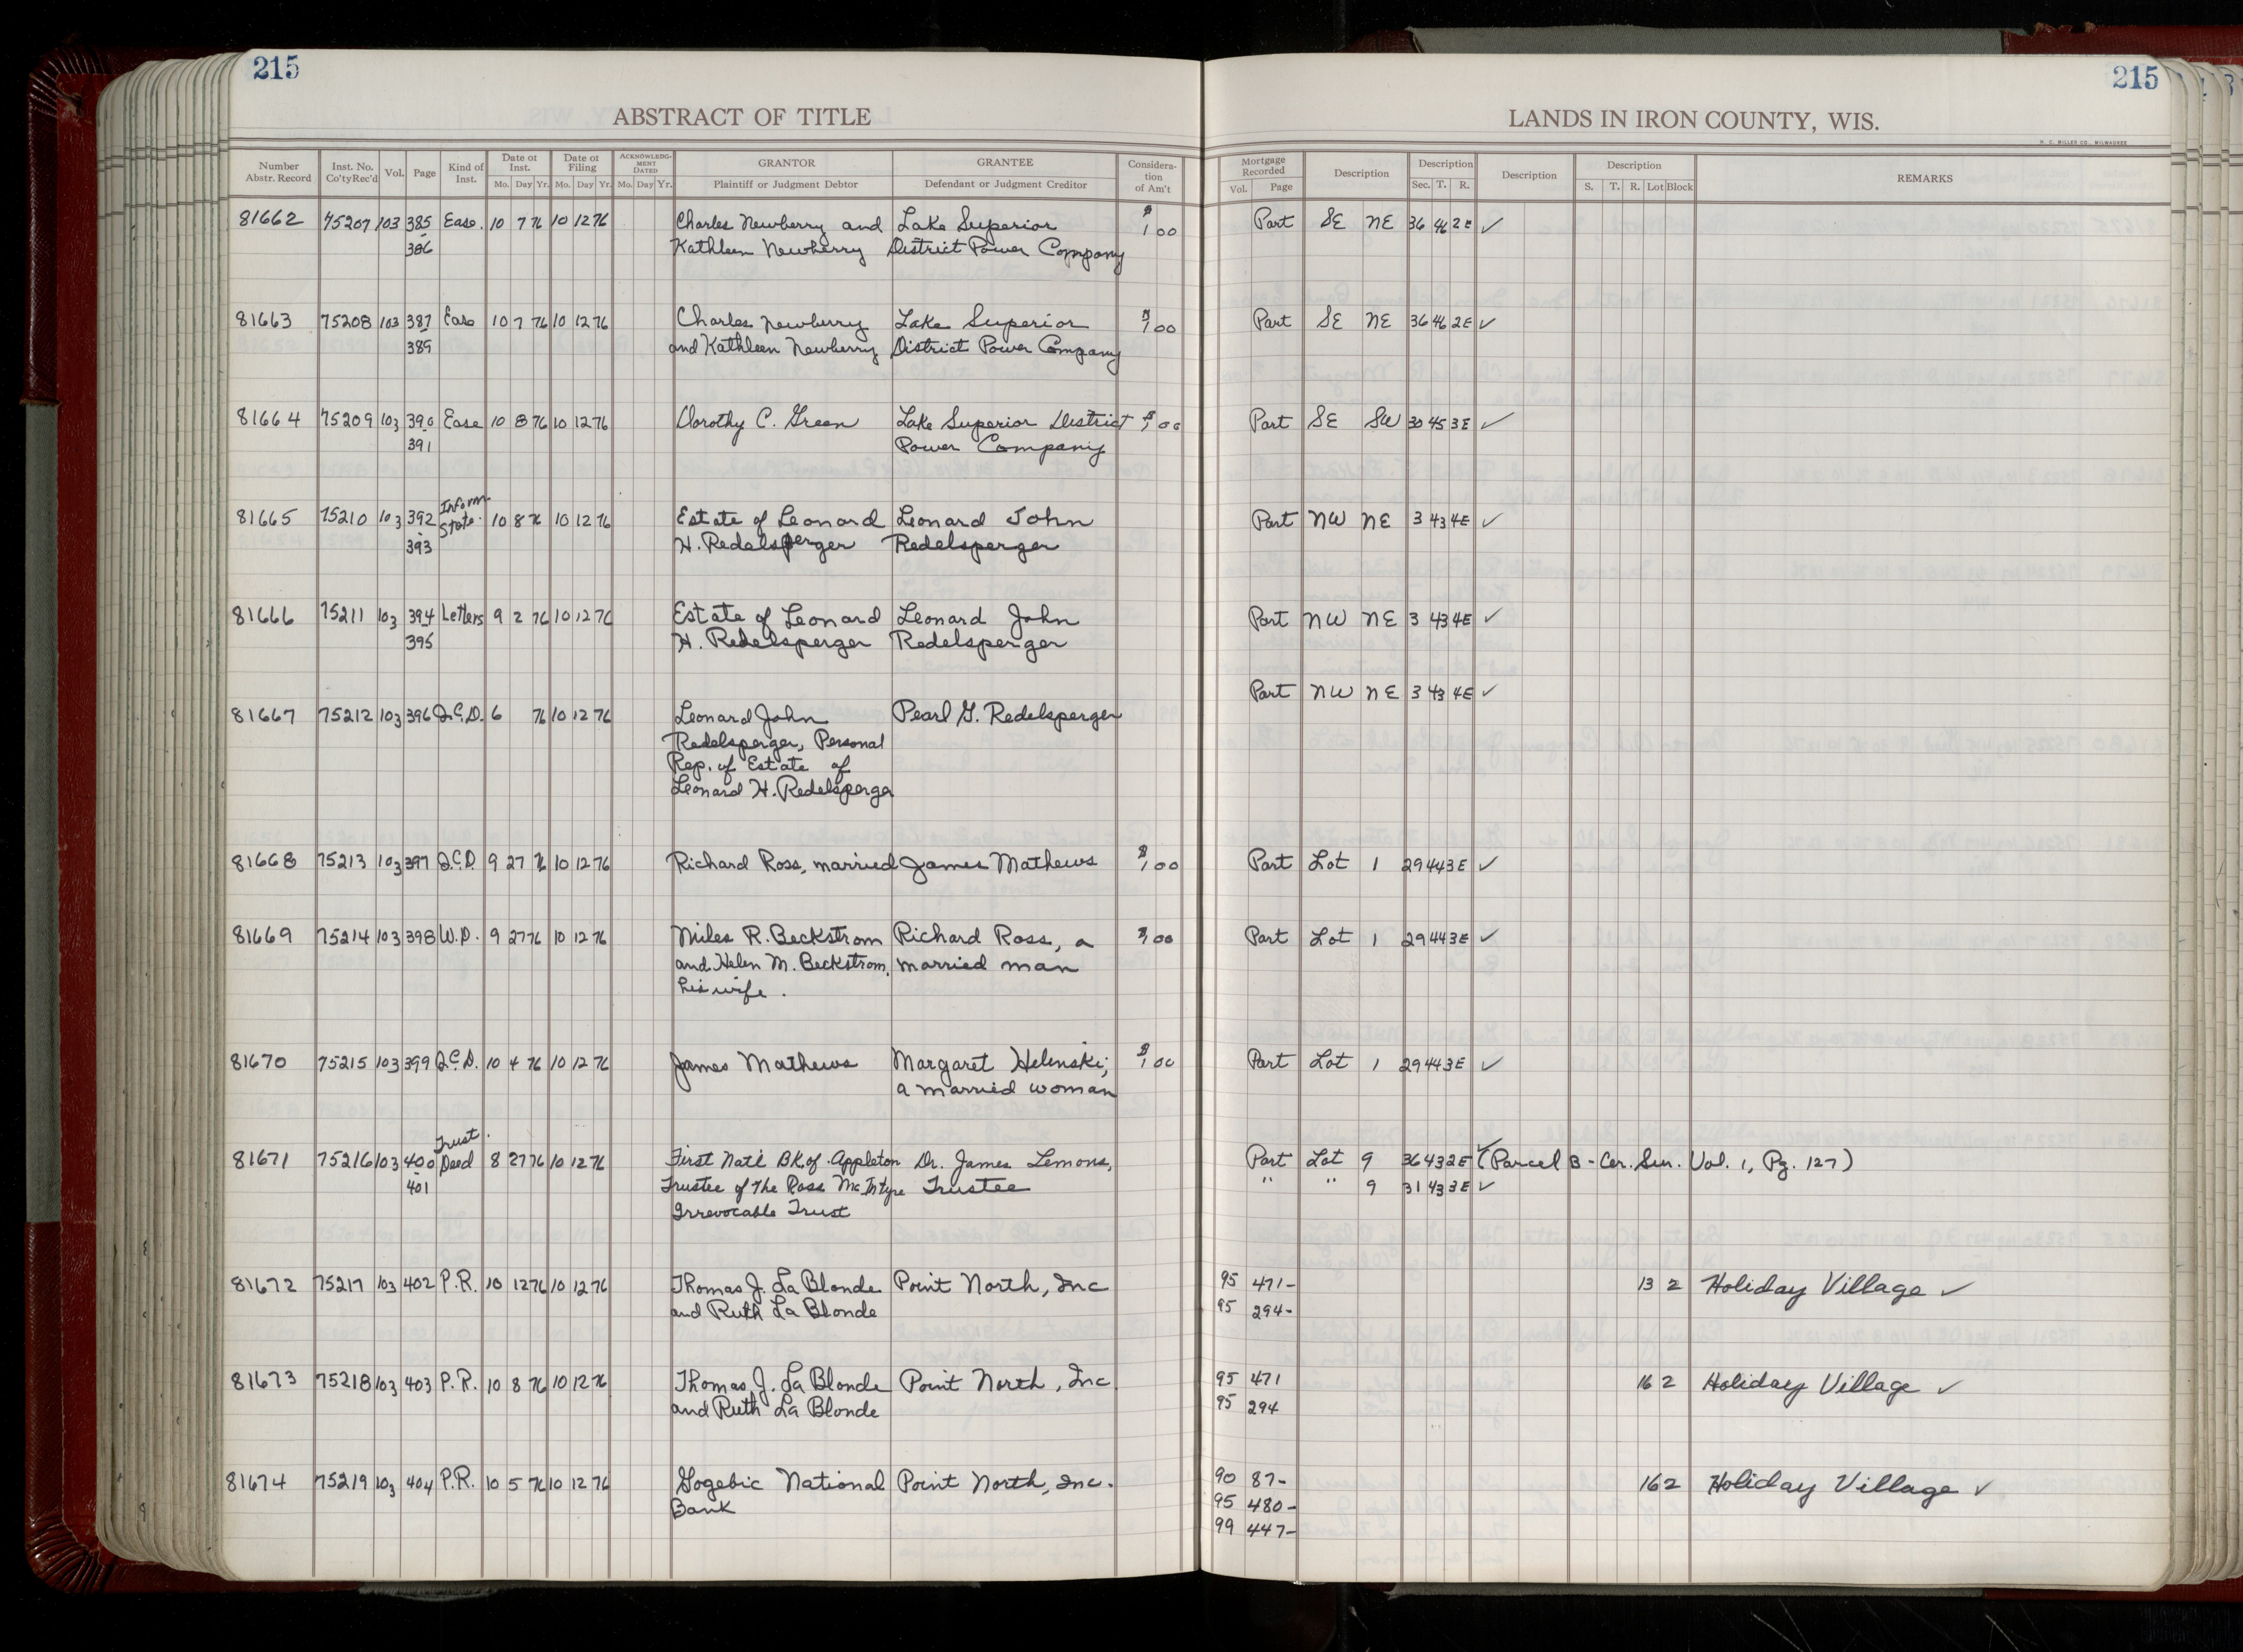 215
215
ABSTRACT OF TITLE
LANDS IN IRON COUNTY, WIS.
H. C. MILLER CO., MILWAUKEE
Number Abstr. Record Inst. No. Co'tyRec'd Vol. Page Kind of Inst. Date of Inst. Mo. Day Yr. Date of Filing Mo. Day Yr. ACKNOWLEDGMENT DATED Mo. Day Yr. GRANTOR Plaintiff or Judgment Debtor GRANTEE Defendant or Judgment Creditor Consideration of Am't
Mortgage Recorded Vol. Page Description Description Sec. T. R. Description Description S. T. R. Lot Block REMARKS
81662 75207 103 385 Ease. 10 7 76 10 12 76 Charles Newberry and Lake Superior $1.00 Part SE NE 36 46 2E ✓
386 Kathleen Newberry District Power Company
81663 75208 103 387 Ease 10 7 76 10 12 76 Charles Newberry Lake Superior $1.00 Part SE NE 36 46 2E ✓
389 and Kathleen Newberry District Power Company
81664 75209 103 390 Ease 10 8 76 10 12 76 Dorothy C. Green Lake Superior District $1.00 Part SE SW 30 45 3E ✓
391 Power Company
81665 75210 103 392 Inform. State. 10 8 76 10 12 76 Estate of Leonard Leonard John Part NW NE 3 43 4E ✓
393 H. Redelsperger Redelsperger
81666 75211 103 394 Letters 9 2 76 10 12 76 Estate of Leonard Leonard John Part NW NE 3 43 4E ✓
395 H. Redelsperger Redelsperger
Part NW NE 3 43 4E ✓
81667 75212 103 396 Q.C.D. 6 76 10 12 76 Leonard John Pearl G. Redelsperger
Redelsperger, Personal
Rep. of Estate of
Leonard H. Redelsperger
81668 75213 103 397 Q.C.D. 9 27 76 10 12 76 Richard Ross, married James Mathews $1.00 Part Lot 1 29 44 3E ✓
81669 75214 103 398 W.D. 9 27 76 10 12 76 Miles R. Beckstrom Richard Ross, a $1.00 Part Lot 1 29 44 3E ✓
and Helen M. Beckstrom, married man
his wife.
81670 75215 103 399 Q.C.D. 10 4 76 10 12 76 James Mathews Margaret Helenski, $1.00 Part Lot 1 29 44 3E ✓
a married woman
81671 75216 103 400 Trust Deed 8 27 76 10 12 76 First Nat'l Bk. of Appleton Dr. James Lemons, Part Lot 9 36 43 2E ✓ (Parcel B - Cer. Sur. Vol. 1, Pg. 127)
401 Trustee of The Ross McIntyre Trustee " " 9 31 43 3E ✓
Irrevocable Trust
81672 75217 103 402 P.R. 10 12 76 10 12 76 Thomas J. La Blonde Point North, Inc 95 471- 13 2 Holiday Village ✓
and Ruth La Blonde 95 294-
81673 75218 103 403 P.R. 10 8 76 10 12 76 Thomas J. La Blonde Point North, Inc 95 471 16 2 Holiday Village ✓
and Ruth La Blonde 95 294
81674 75219 103 404 P.R. 10 5 76 10 12 76 Gogebic National Point North, Inc. 90 87- 16 2 Holiday Village ✓
Bank 95 480-
99 447-